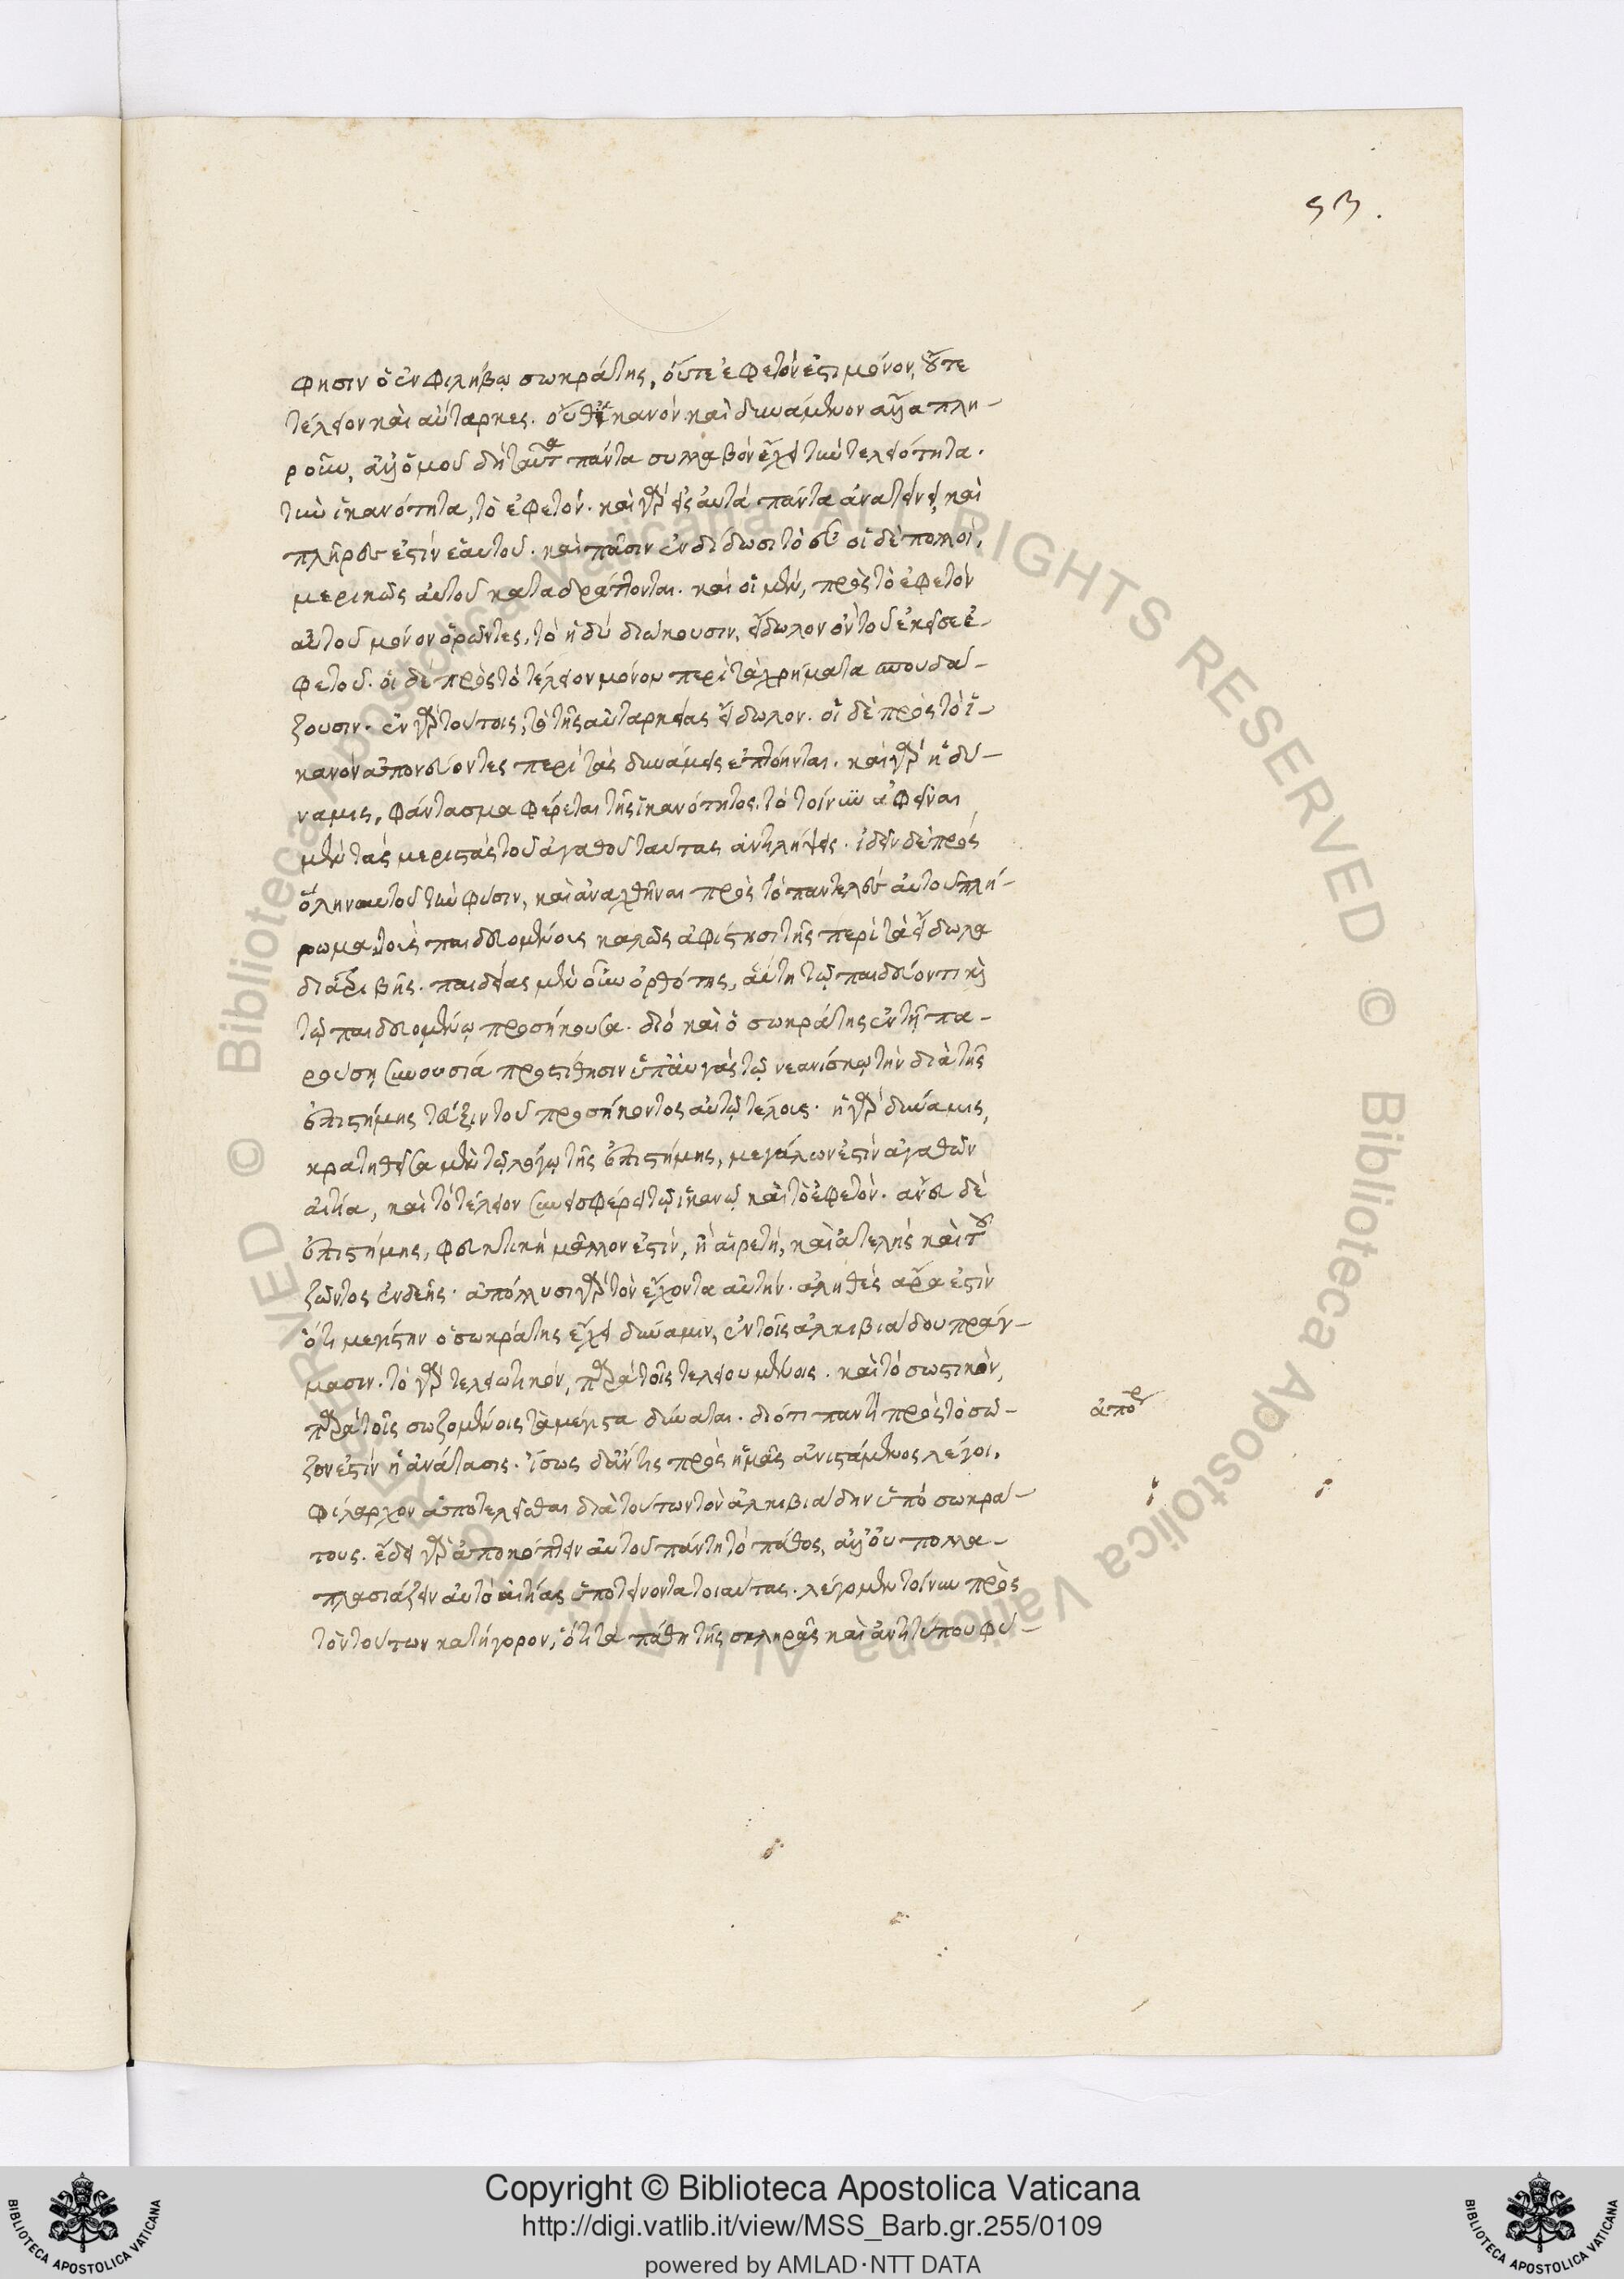 53.
φησιν ὁ ἐν φιλήβῳ σωκράτης, οὔτε ἐφετόν ἐστι μόνον, οὔτε
τέλειον καὶ αὔταρκες. οὔθ' ἱκανὸν καὶ δυνάμενον ἄλλα πλη-
ροῦν, ἀλλ' ὁμοῦ δὴ ταῦτα πάντα συλλαβὸν ἔχει τὴν τελειότητα.
τὴν ἱκανότητα, τὸ ἐφετόν. καὶ γὰρ εἰς αὐτὰ πάντα ἀνατείνει, καὶ
πλῆρές ἐστιν ἑαυτοῦ. καὶ πᾶσιν ἐνδίδωσι τὸ εὖ οἱ δὲ πολλοὶ,
μερικῶς αὐτοῦ καταδράττονται. καὶ οἱ μὲν, πρὸς τὸ ἐφετὸν
αὐτοῦ μόνον ὁρῶντες, τὸ ἡδὺ διώκουσιν, εἴδωλον ὂν τοῦ ἐκεῖσε ἐ-
φετοῦ. οἱ δὲ πρὸς τὸ τέλειον μόνον περὶ τὰ χρήματα σπουδά-
ζουσιν. ἐν γὰρ τούτοις, τὸ τῆς αὐταρκείας εἴδωλον. οἱ δὲ πρὸς τὸ ἱ-
κανὸν ἀπονεύοντες περὶ τὰς δυνάμεις ἐπτόηνται. καὶ γὰρ ἡ δύ-
ναμις, φάντασμα φέρεται τῆς ἱκανότητος. τὸ τοίνυν ἀφεῖναι
μὲν τὰς μεριστὰς τοῦ ἀγαθοῦ ταύτας ἀντιλήψεις. ἰδεῖν δὲ πρὸς
ὅλην αὐτοῦ τὴν φύσιν, καὶ ἀναχθῆναι πρὸς τὸ παντελὲς αὐτοῦ πλή-
ρωμα τοὺς παιδευομένους καλῶς ἀφίστησι τῆς περὶ τὰ εἴδωλα
διατριβῆς. παιδείας μὲν οὖν ὀρθότης, αὕτη τῷ παιδεύοντι καὶ
τῷ παιδευομένῳ προσήκουσα. διὸ καὶ ὁ σωκράτης ἐν τῇ πα-
ρούσῃ συνουσίᾳ προστίθησιν ὑπ' αὐγὰς τῷ νεανίσκῳ τὴν διὰ τῆς
ἐπιστήμης τάξιν τοῦ προσήκοντος αὐτῷ τέλους. ἡ γὰρ δύναμις,
κρατηθεῖσα μὲν τῷ λόγῳ τῆς ἐπιστήμης, μεγάλων ἐστὶν ἀγαθῶν
αἰτία, καὶ τὸ τέλειον συνεισφέρει τῷ ἱκανῷ καὶ τὸ ἐφετὸν. ἄνευ δὲ
ἐπιστήμης, φευκτικὴ μᾶλλον ἐστὶν, ἢ αἱρετὴ, καὶ ἀτελὴς καὶ τοῦ
ζῶντος ἐνδεής. ἀπόλλυσι γὰρ τὸν ἔχοντα αὐτήν. ἀληθὲς ἄρα ἐστὶν
ὅτι μεγίστην ὁ σωκράτης ἔχει δύναμιν, ἐν τοῖς ἀλκιβιάδου πράγ-
μασιν. τὸ γὰρ τελειωτικόν, παρὰ τοῖς τελειουμένοις. καὶ τὸ σωστικὸν,
παρὰ τοῖς σωζομένοις τὰ μέγιστα δύναται. διότι παντὶ πρὸς τὸ σῶ-
ζον ἐστὶν ἡ ἀνάτασις. ἴσως δ' ἄν τις πρὸς ἡμᾶς ἀνιστάμενος λέγοι,
φίλαρχον ἀποτελεῖσθαι διὰ τούτων τὸν ἀλκιβιάδην ὑπὸ σωκρά-
τους. ἔδει γὰρ ἀποκόπτειν αὐτοῦ πάντη τὸ πάθος, ἀλλ' οὐ πολλα-
πλασιάζειν αὐτὸ αἰτίας ὑποτείνοντα τοιαύτας. λέγομεν τοίνυν πρὸς
τὸν τούτων κατήγορον, ὅτι τὰ πάθη τῆς σκληρᾶς καὶ ἀντιτύπου φύ-
ἀπορ
Copyright © Biblioteca Apostolica Vaticana
http://digi.vatlib.it/view/MSS_Barb.gr.255/0109
powered by AMLAD·NTT DATA
BIBLIOTECA APOSTOLICA VATICANA
BIBLIOTECA APOSTOLICA VATICANA
Biblioteca Apostolica Vaticana ALL RIGHTS RESERVED ©
Biblioteca Apostolica Vaticana ALL RIGHTS RESERVED ©